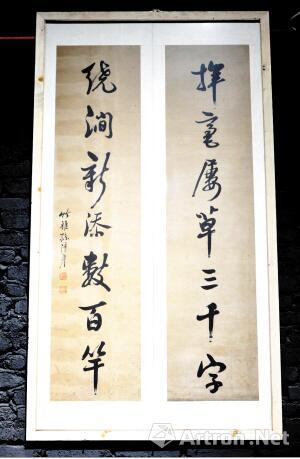 挥毫屡草三千字
绕涧新添数百竿
Artron.Net